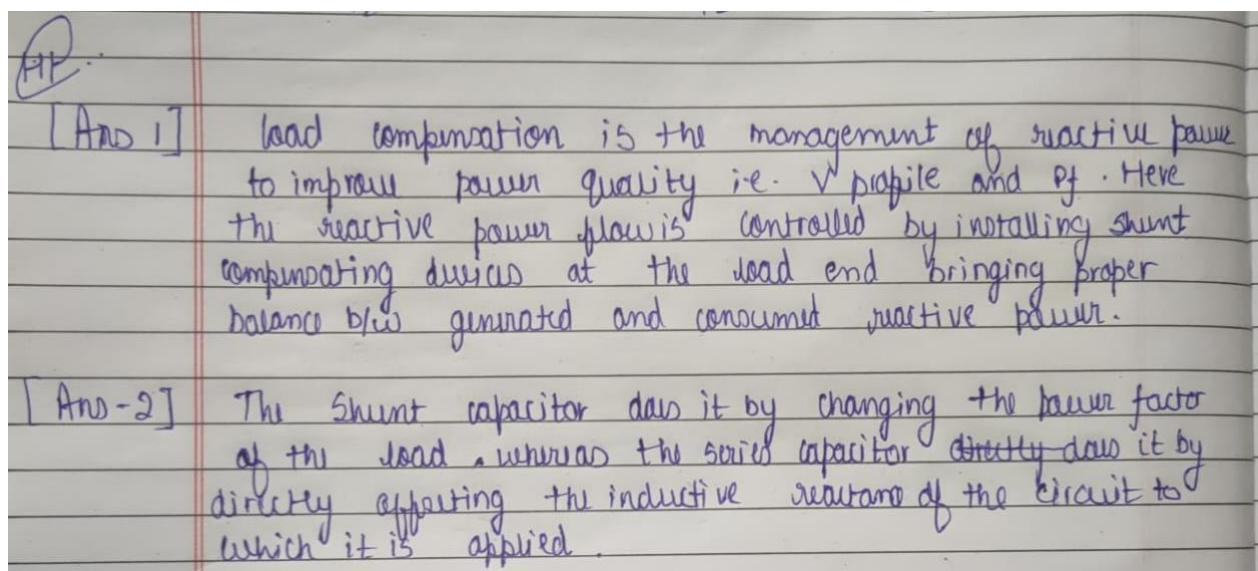 HP.
[Ans 1] load compensation is the management of reactive power
to improve power quality i.e. V profile and Pf. Here
the reactive power flow is controlled by installing shunt
compensating devices at the load end bringing proper
balance b/w generated and consumed reactive power.
[Ans-2] The Shunt capacitor does it by changing the power factor
of the load, whereas the series capacitor directly does it by
directly affecting the inductive reactance of the circuit to
which it is applied.